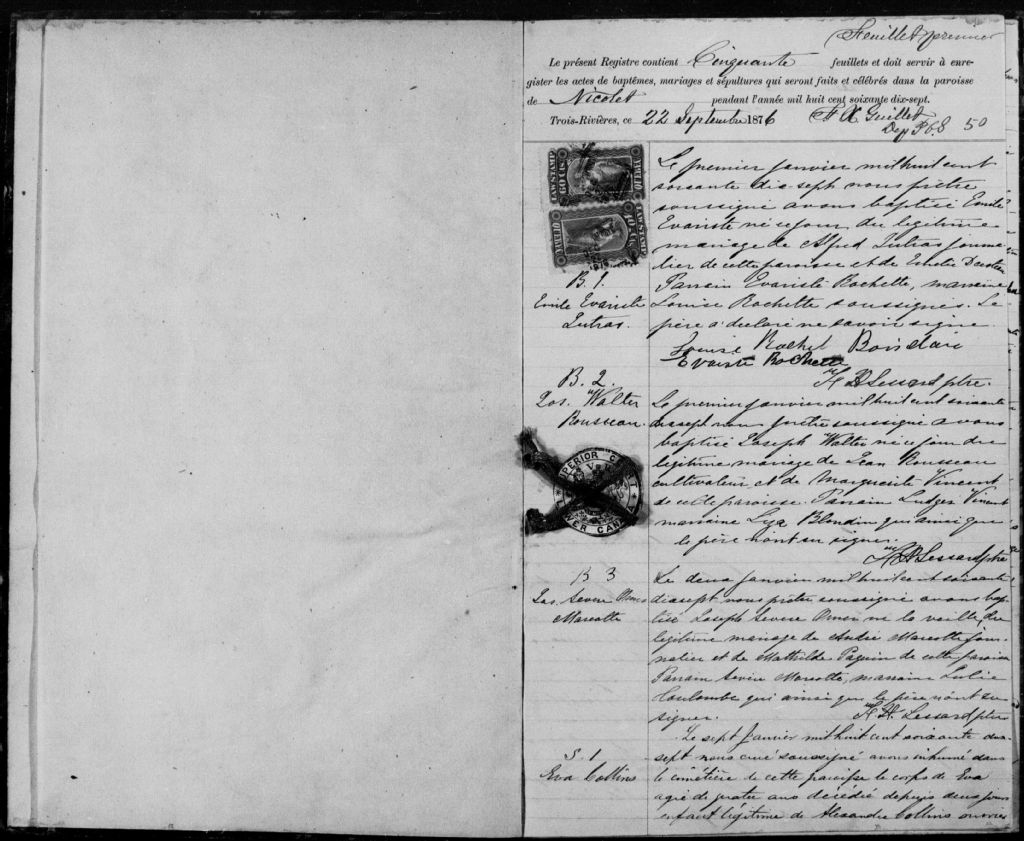 Feuillet premier
Le présent Registre contient Cinquante feuillets et doit servir à enre-
gister les actes de baptêmes, mariages et sépultures qui seront faits et célébrés dans la paroisse
de Nicolet pendant l'année mil huit cent soixante dix-sept.
Trois-Rivières, ce 22 Septembre 1876 F X Guillet
Dep 50
LAW STAMP
60 CTS
QUEBEC
LAW STAMP
QUEBEC
B. 1.
Emile Evariste
Lutras.
Le premier janvier mil huit cent
soixante dix-sept nous prêtre
soussigné avons baptisé Emile
Evariste né ce jour du légitime
mariage de Alfred Lutras journa
lier de cette paroisse et de
Parrain Evariste Rochette, marraine
Louise Rochette soussignés. Le
père a déclaré ne savoir signer
Louise Rochet
Evariste Rochette
Lessard ptre.
B. 2.
Jos. Walter
Rousseau.
Le premier janvier mil huit cent soixante
dix sept nous prêtre soussigné avons
baptisé Joseph Walter né ce jour du
légitime mariage de Jean Rousseau
cultivateur et de Marguerite Vincent
de cette paroisse. Parrain Ludger Vincent
marraine Liza Blondin qui ainsi que
le père n'ont su signer.
Lessard ptre
SUPERIOR COURT
LOWER CANADA
V R
B 3
Jos. Sévère Omer
Marcotte
Le deux janvier mil huit cent soixante
dix sept nous prêtre soussigné avons bap
tisé Joseph Sévère Omer né la veille du
légitime mariage de André Marcotte jour
nalier et de Mathilde Paquin de cette paroisse
Parrain Sévère Marcotte, marraine Julie
Coulombe qui ainsi que le père n'ont su
signer.
Lessard ptre
S. 1
Eva Collins
Le sept Janvier mil huit cent soixante dix
sept nous curé soussigné avons inhumé dans
le cimétière de cette paroisse le corps de Eva
agée de quatre ans décédée depuis deux jours
enfant légitime de Alexandre Collins ouvrier